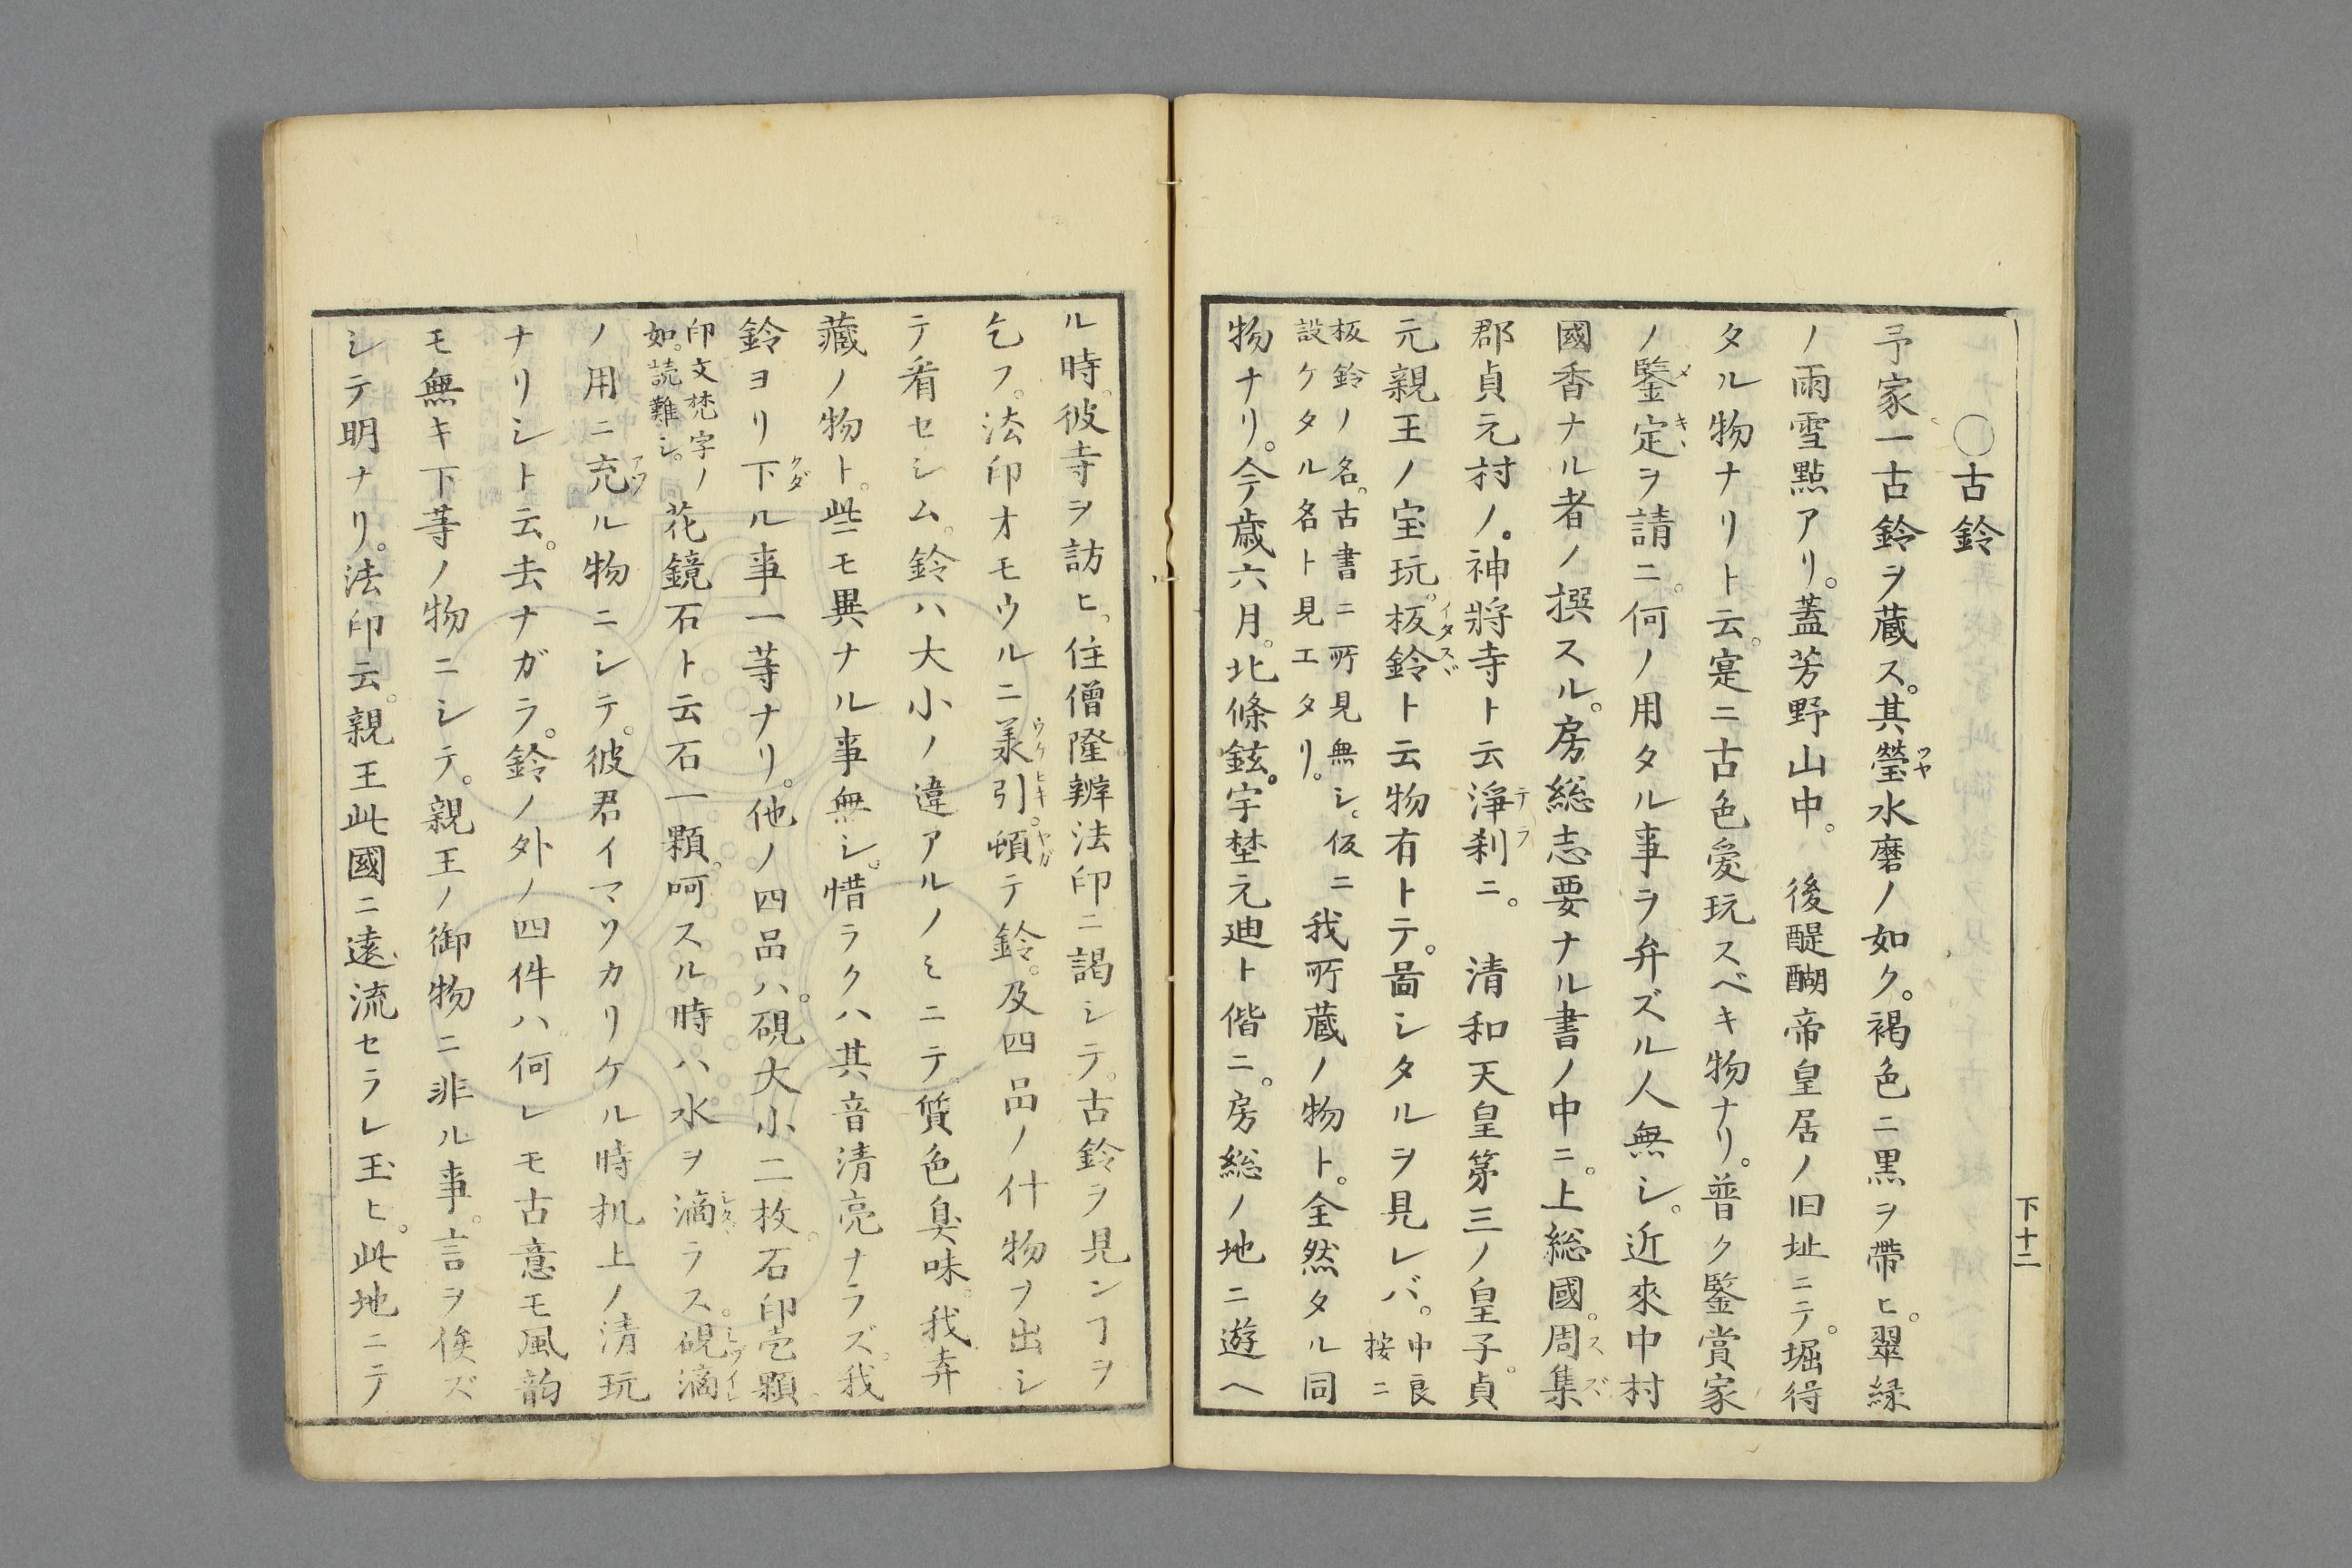 ○古鈴
予家一古鈴ヲ蔵ス。其瑩水磨ノ如ク。褐色ニ黒ヲ帶ヒ。翠緑
ノ雨雪點アリ。蓋芳野山中。後醍醐帝皇居ノ旧址ニテ。堀得
タル物ナリト云。寔ニ古色愛玩スベキ物ナリ。普ク鑒賞家
ノ鑒定ヲ請ニ。何ノ用タル事ヲ弁ズル人無シ。近來中村
國香ナル者ノ撰スル。房総志要ナル書ノ中ニ。上総國。周集
郡貞元村ノ。神將寺ト云淨刹ニ。清和天皇第三ノ皇子。貞
元親王ノ宝玩。板鈴ト云物有トテ。啚シタルヲ見レバ。中良按ニ
板鈴ノ名。古書ニ所見無シ。仮ニ設ケタル名ト見エタリ。我所蔵ノ物ト。全然タル同
物ナリ。今歳六月。北條鉉。宇埜元迪ト偕ニ。房総ノ地ニ遊ヘ
下十二
ル時。彼寺ヲ訪ヒ。住僧隆辨法印ニ謁シテ。古鈴ヲ見ンヿヲ
乞フ。法印オモウルニ羕引。頓テ鈴。及四品ノ什物ヲ出シ
テ看セシム。鈴ハ大小ノ違アルノミニテ。質色臭味。我弆
藏ノ物ト。些モ異ナル事無シ。惜ラクハ其音清亮ナラズ。我
鈴ヨリ下ル事一等ナリ。他ノ四品ハ。硯大小二枚。石印壱顆。
印文梵字ノ如。読難シ。花鏡石ト云石一顆。呵スル時ハ水ヲ滴ラス。硯滴
ノ用ニ充ル物ニシテ。彼君イマソカリケル時机上ノ清玩
ナリシト云。去ナガラ。鈴ノ外ノ四件ハ何レモ古意モ風韵
モ無キ下等ノ物ニシテ。親王ノ御物ニ非ル事。言ヲ俟ズ
シテ明ナリ。法印云。親王此國ニ遠流セラレ玉ヒ。此地ニテ